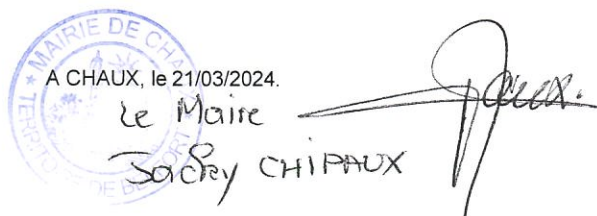 MAIRIE DE CHAUX
TERRITOIRE DE BELFORT
A CHAUX, le 21/03/2024.
Le Maire
Jacky CHIPAUX